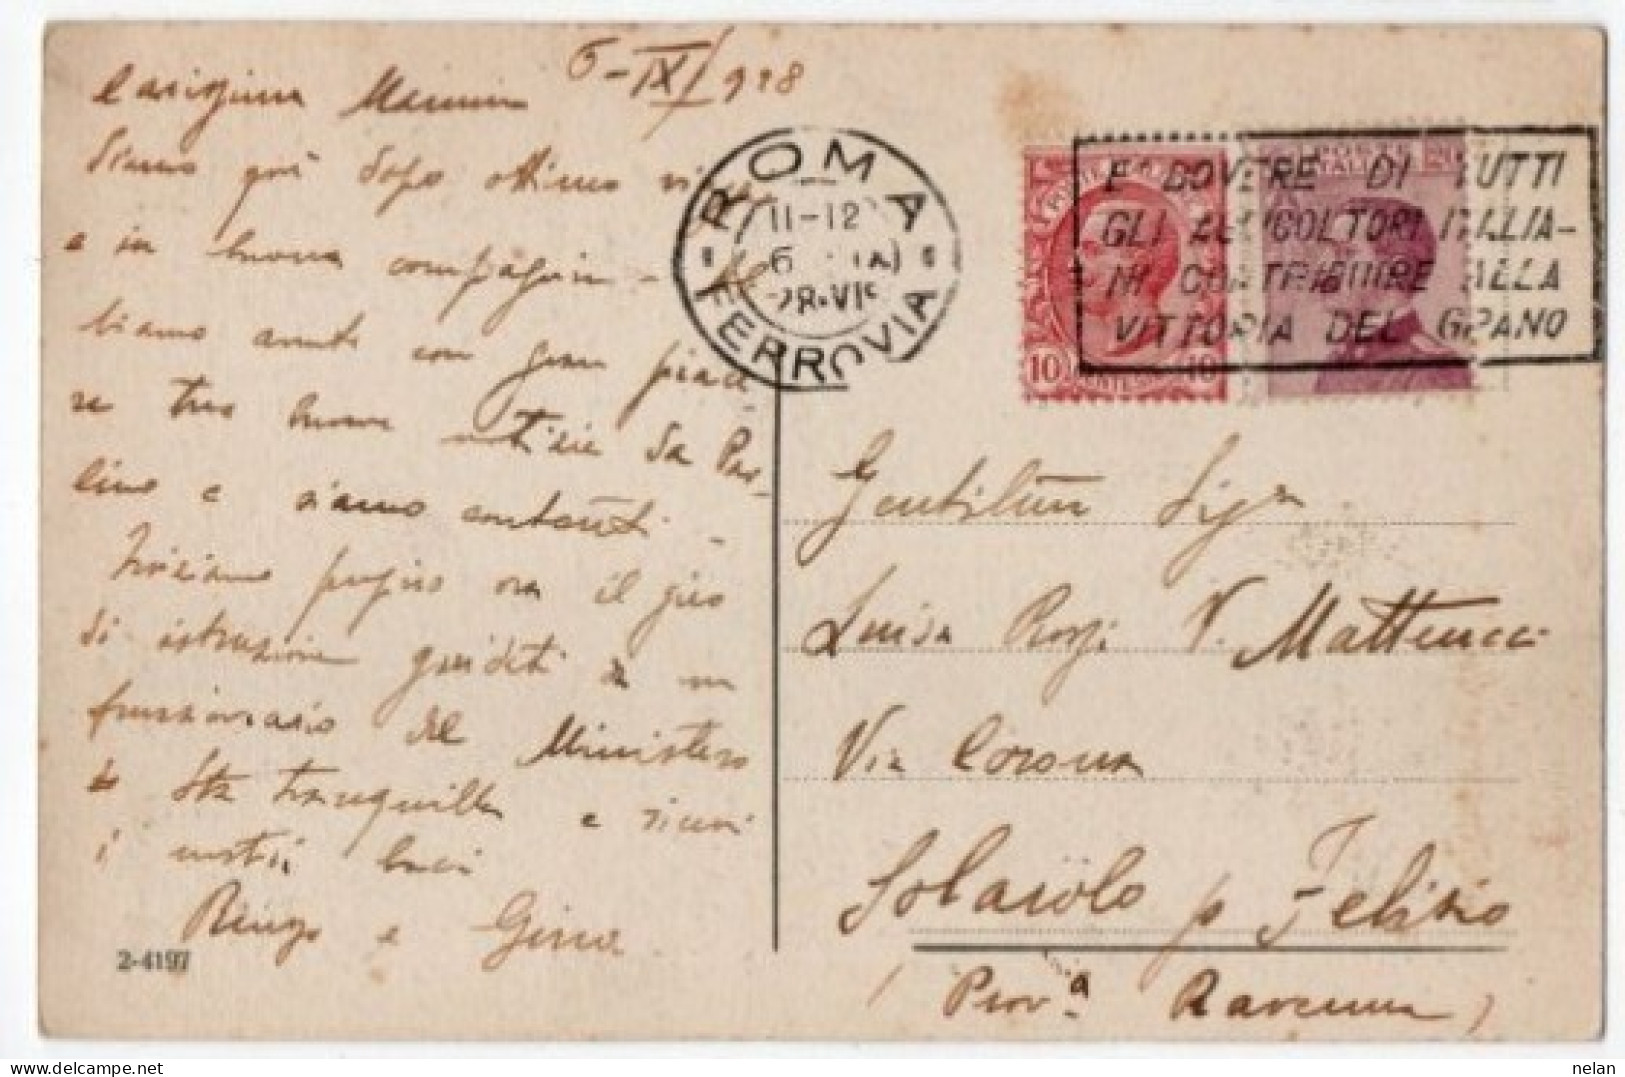 6-IX/928
Carissima Mammina
Siamo qui dopo ottimo
e in buona compagnia - Ab
biamo avuto con gran piace
re tue buone notizie da Par-
lino e siamo contenti -
Iniziamo proprio ora il giro
di istruzione guidati da un
funzionario del Ministero
Sta tranquilla e ricevi
i nostri baci
e Gina
2-4197
ROMA
11-12
6 IX
28.VI
FERROVIA
10 10
20
E DOVERE DI TUTTI
GLI AGRICOLTORI ITALIA-
NI CONTRIBUIRE ALLA
VITTORIA DEL GRANO
Gentilma Sigra
Luisa Ronzi V. Matteucci
Via Corona
Solarolo p Felisio
(Prov.a Ravenna)
nelan